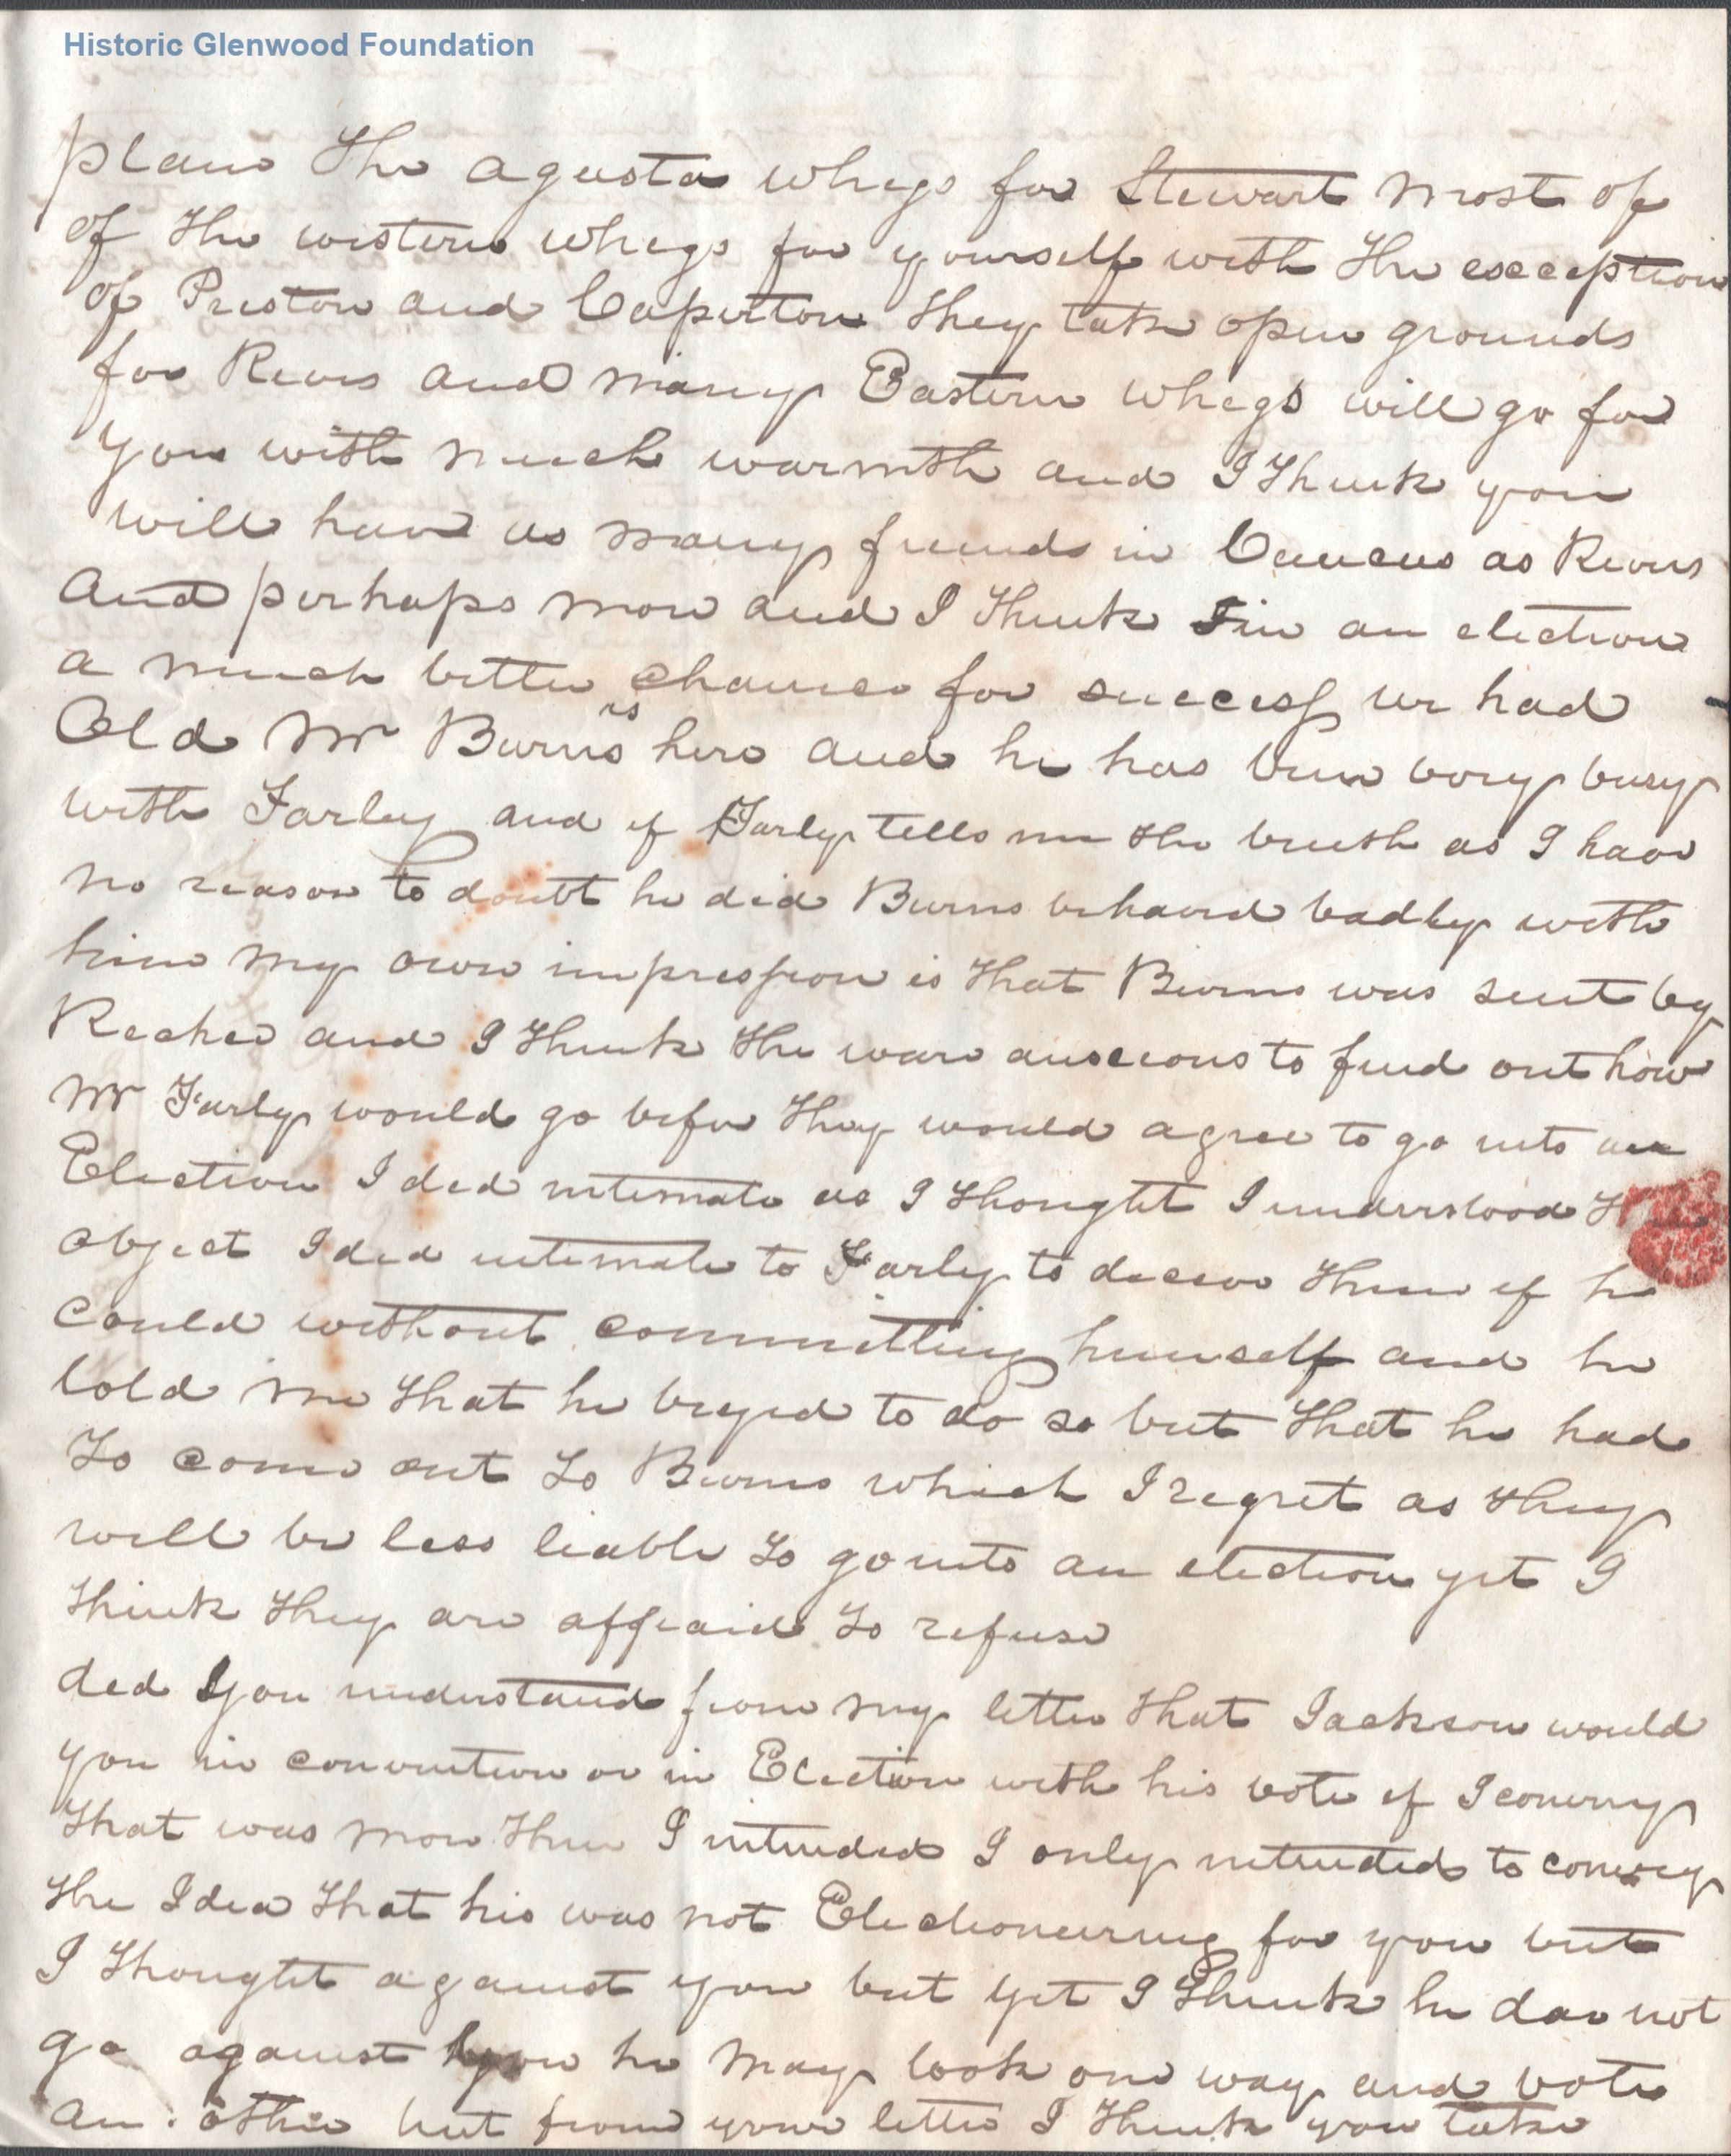 Historic Glenwood Foundation
plane The agusta whegs for Stewart most of
of the western whegs for yourself with the excception
of Preston and Caperton They take open grounds
for Reves and many Eastern whegs will go for
you with much warmth and I Think you
will have as many friends in Caucus as Reves
And perhaps more and I Think in an election
a much better chance for success we had
Old Mr Burns is here and he has bun very busy
with Farley and if Farly tells me the truth as I have
no reason to doubt he did Burns behaved badly with
him my own impression is That Burns was sent by
and I Think the ware anxcious to find out how
Mr Farly would go befor They would agree to go into an
Election I ded intimate as I Thought I understood
object I ded intimate to Farly to deceve Them if he
could without committing himself and he
told me That he beged to do so but That he had
To come out to Burns which I regret as they
will be less liable to go into an election yet I
Think They are affraid to refuse
ded you understand from my letter That Jackson would
you in convention or in Election with his vote if I convey
That was more Then I intended I only intended to convey
the Idea That his was not Electioneering for you but
I Thought against you but yet I Think he dar not
go against you he may look one way and vote
an othe but from your lette I Think you take